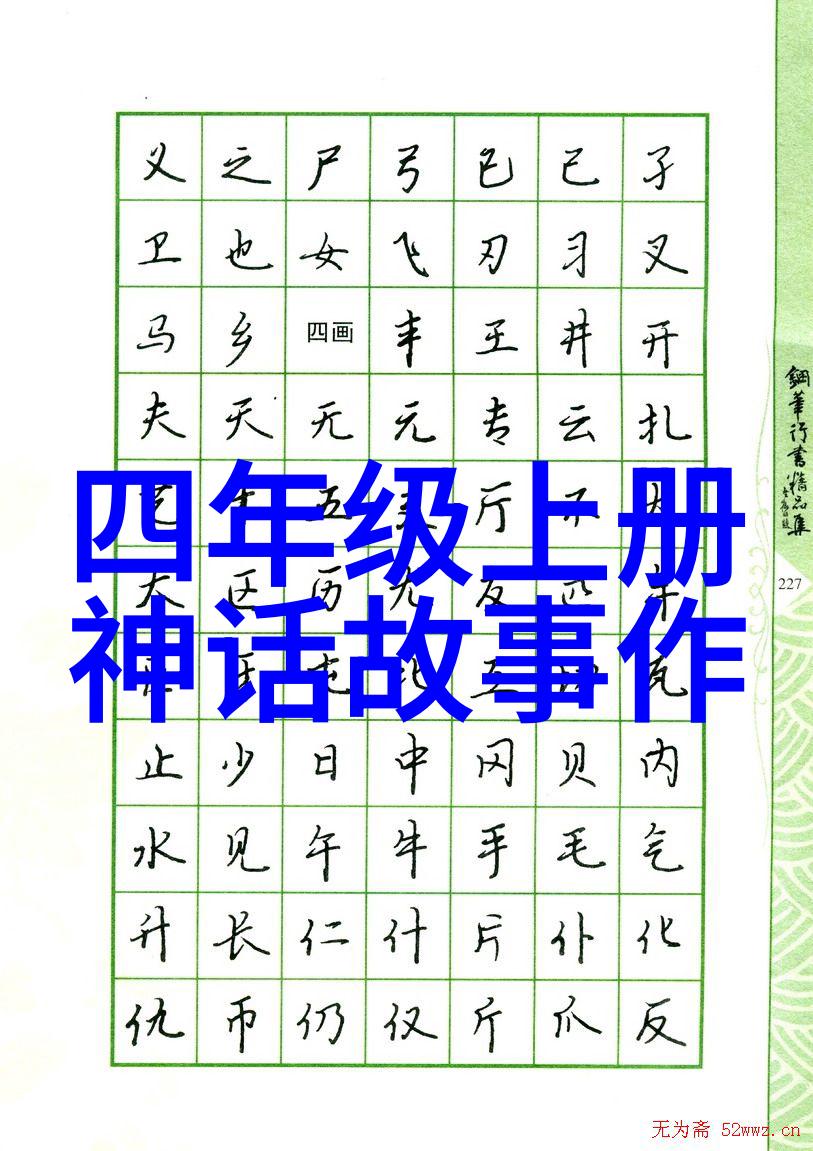 义 之 尸 弓 已 己 子
卫 也 女 飞 刃 习 叉
马 乡 四画 丰 王 井 开
夫 天 无 元 专 云 扎
四年级上册
神话故事作
五 厅
太 区 历 尤 友 匹
屯 比 互 瓦
止 少 日 中 冈 贝 内
水 见 午 牛 手 毛 气
升 长 仁 什 片 仆 化
仇 币 仍 仅 斤 爪 反
钢笔行书精品集
227
无为斋 52wwz.cn